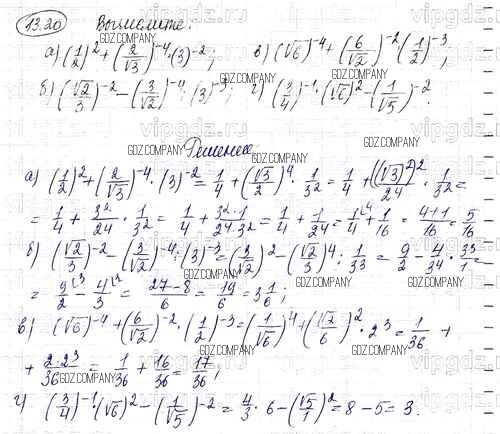 13.20 Вычислите:
а) (1/2)² + (2/√3)⁻⁴ · (3)⁻²; в) (√6)⁻⁴ + (6/√2)⁻² · (1/2)⁻³;
б) (√2/3)⁻² − (3/√2)⁻⁴ : (3)⁻³; г) (3/4)⁻¹ · (√6)² − (1/√5)⁻².
Решение
а) (1/2)² + (2/√3)⁻⁴ · (3)⁻² = 1/4 + (√3/2)⁴ · 1/3² = 1/4 + ((√3)²)²/2⁴ · 1/3² =
= 1/4 + 3²/2⁴ · 1/3² = 1/4 + 3²·1/2⁴·3² = 1/4 + 1/2⁴ = 1/4 + 1/16 = 4+1/16 = 5/16
б) (√2/3)⁻² − (3/√2)⁻⁴ : (3)⁻³ = (3/√2)² − (√2/3)⁴ : 1/3³ = 9/2 − 4/3⁴ · 3³/1 =
= 9/2 − 4/3 = 27−8/6 = 19/6 = 3 1/6;
в) (√6)⁻⁴ + (6/√2)⁻² · (1/2)⁻³ = (1/√6)⁴ + (√2/6)² · 2³ = 1/36 +
+ 2·2³/36 = 1/36 + 16/36 = 17/36;
г) (3/4)⁻¹ · (√6)² − (1/√5)⁻² = 4/3 · 6 − (√5/1)² = 8 − 5 = 3.